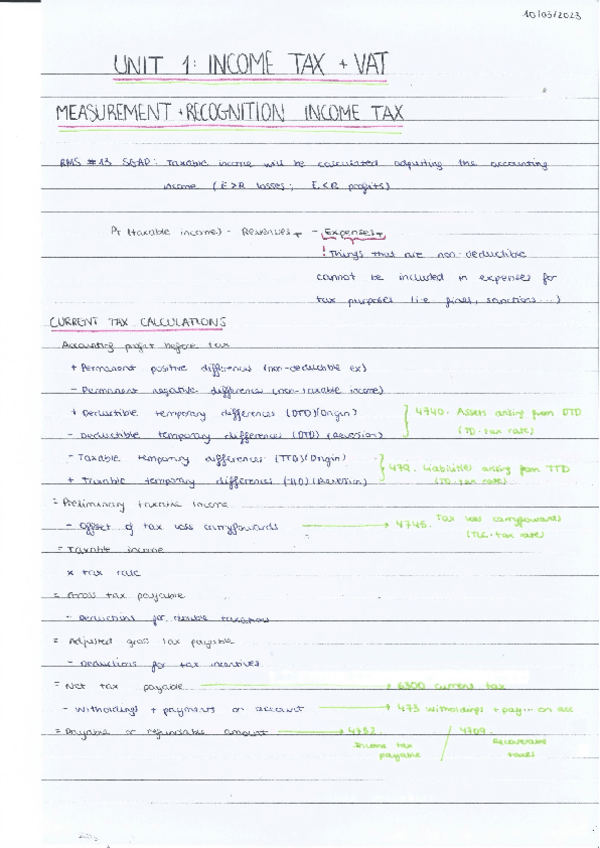 10/03/2023
UNIT 1: INCOME TAX + VAT
MEASUREMENT + RECOGNITION INCOME TAX
#13 SGAP: Taxable income will be calculated adjusting the accounting
income (E>R losses; E<R profits)
(taxable income) - Revenues - Expenses
! Things that are non-deductible
cannot be included in expenses for
tax purposes (i.e. fines, sanctions...)
CURRENT TAX CALCULATIONS
Accounting profit before tax
+ Permanent positive differences (non-deductible ex)
- Permanent negative differences (non-taxable income)
+ Deductible temporary differences (DTD) (Origin) 4740. Assets arising from DTD
- Deductible temporary differences (DTD) (Reversion) (TD · tax rate)
- Taxable temporary differences (TTD) (Origin) 479. Liabilities arising from TTD
+ Taxable temporary differences (TTD) (Reversion) (TD · tax rate)
= Preliminary taxable income
- Offset of tax loss carryforwards → 4745. Tax loss carryforwards
(TLC · tax rate)
= Taxable income
x tax rate
= Gross tax payable
- Deductions for double taxation
= Adjusted gross tax payable
- Deductions for tax incentives
= Net tax payable → 6300 current tax
- Witholdings + payments on account → 473 witholdings + pay... on acc
= Payable or refundable amount → 4752. / 4709.
Income tax payable / Recoverable taxes